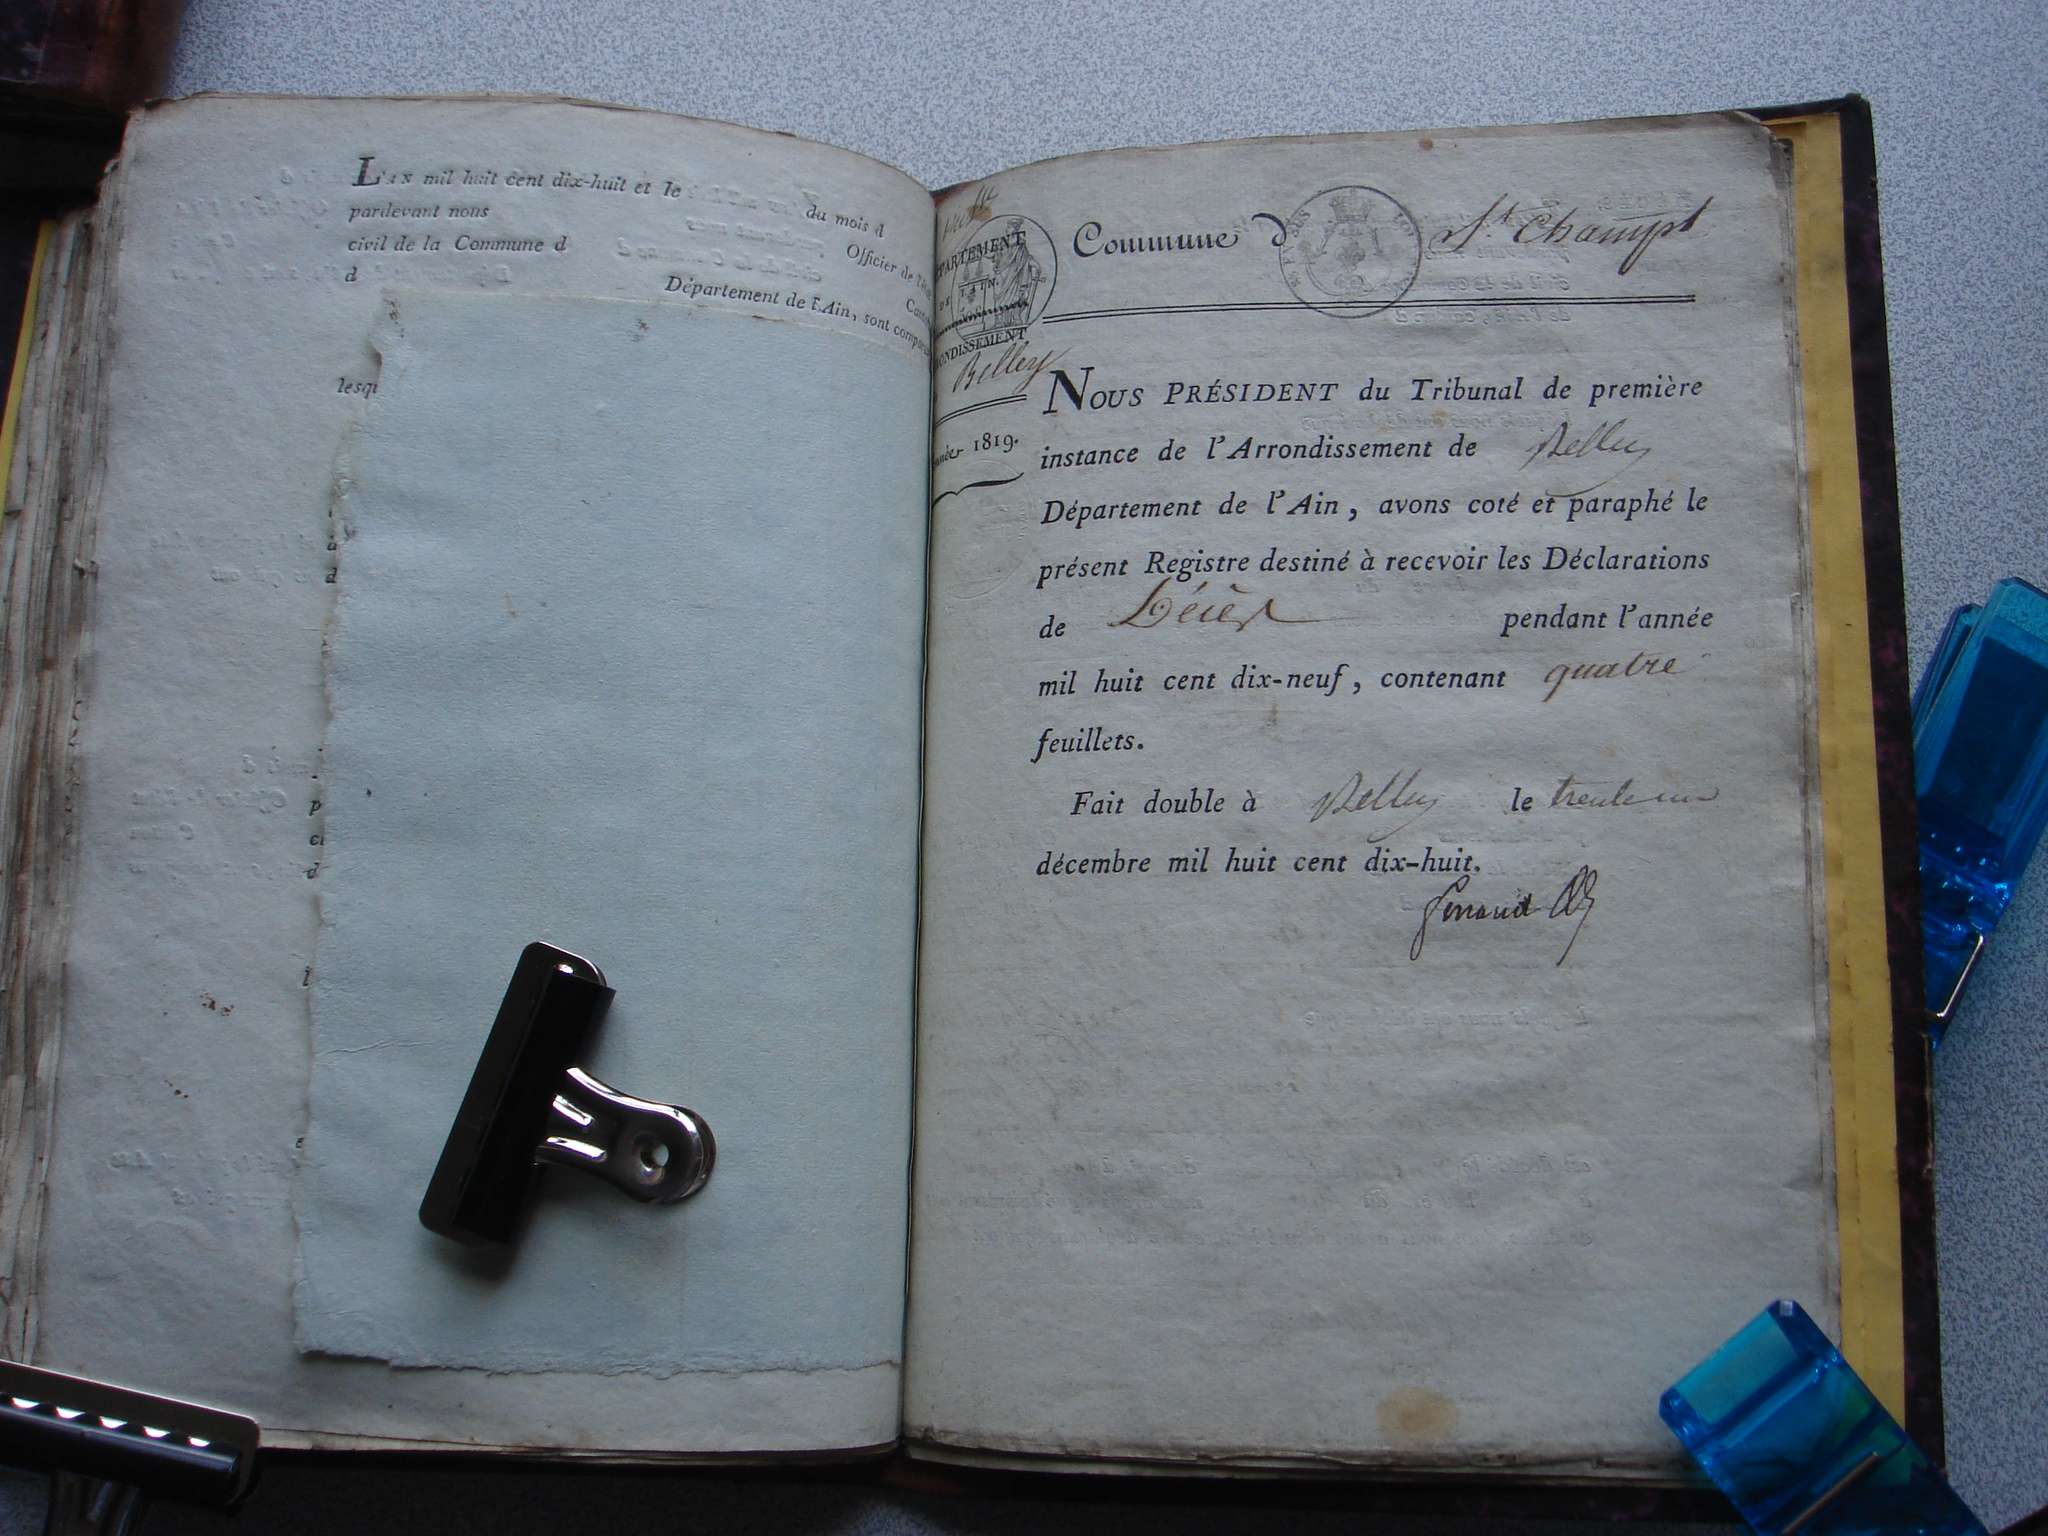 L'AN mil huit cent dix-huit et le du mois d
pardevant nous Officier de l'état
civil de la Commune d
d Département de l'Ain, sont
lesqu
à
d
p
d
DÉPARTEMENT
DE L'AIN.
ARRONDISSEMENT
Belley
Année 1819.
Commune d St. Champt
NOUS PRÉSIDENT du Tribunal de première
instance de l'Arrondissement de Belley
Département de l'Ain, avons coté et paraphé le
présent Registre destiné à recevoir les Déclarations
de Décès pendant l'année
mil huit cent dix-neuf, contenant quatre
feuillets.
Fait double à Belley le trente un
décembre mil huit cent dix-huit.